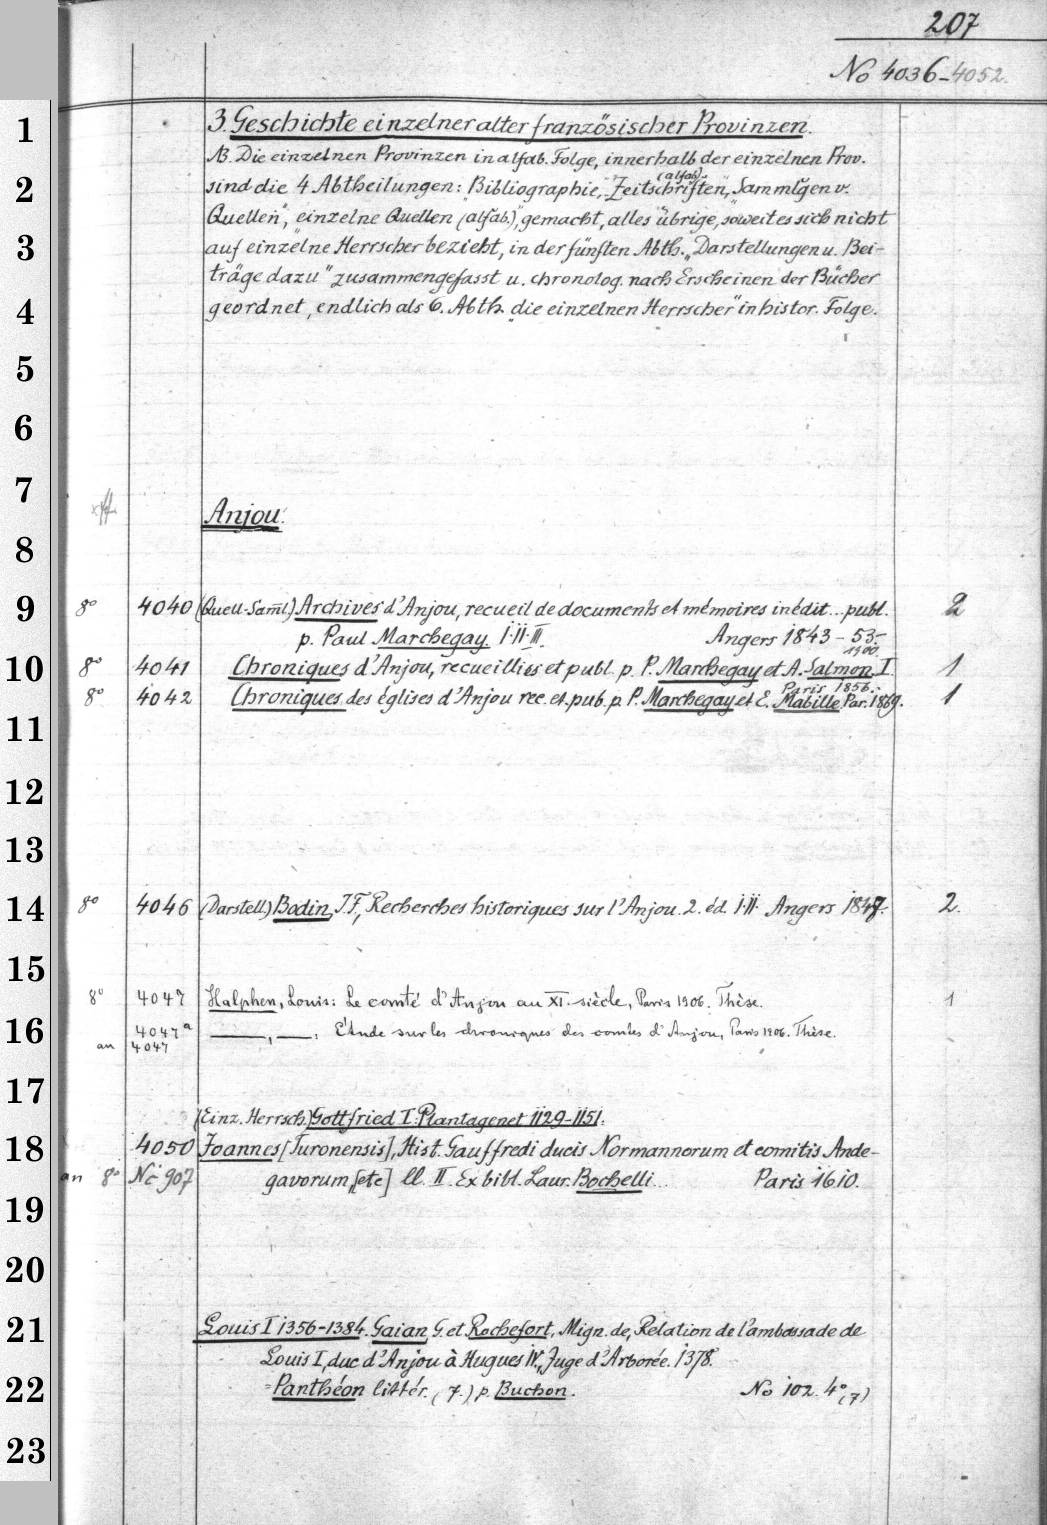 207
No 4036-4052.
1
3. Geschichte einzelner alter französischer Provinzen.
NB. Die einzelnen Provinzen in alfab. Folge, innerhalb der einzelnen Prov.
2
sind die 4 Abtheilungen: "Bibliographie, Zeitschriften (alfab)," "Sammlgen v.
Quellen", "einzelne Quellen (alfab.)", gemacht, alles übrige, soweit es sich nicht
3
auf einzelne Herrscher bezieht, in der fünften Abth. "Darstellungen u. Bei-
träge dazu" zusammengefasst u. chronolog. nach Erscheinen der Bücher
4
geordnet, endlich als 6. Abth. "die einzelnen Herrscher" in histor. Folge.
5
6
7
Anjou.
8
9
8° 4040 (Quell-Saml.) Archives d'Anjou, recueil de documents et mémoires inédit... publ. 2
p. Paul Marchegay. I.II.III. Angers 1843-53-
1900.
10
8° 4041 Chroniques d'Anjou, recueillies et publ. p. P. Marchegay et A. Salmon I 1
Paris 1856.
8° 4042 Chroniques des églises d'Anjou rec. et. pub. p. P. Marchegay et E. Mabille Par. 1869. 1
11
12
13
14
8° 4046 (Darstell.) Bodin, J.F., Recherches historiques sur l'Anjou. 2. éd. I.II. Angers 1847. 2.
15
8° 4047 Halphen, Louis: Le comté d'Anjou au XI. siècle, Paris 1906. Thèse. 1
16
4047a ——, ——: Etude sur les chroniques des comtes d'Anjou, Paris 1906. Thèse.
an 4047
17
(Einz. Herrsch.) Gottfried I. Plantagenet 1129-1151.
18
4050 Joannes [Turonensis], Hist. Gauffredi ducis Normannorum et comitis Ande-
an 8° Nc 907 gavorum, [etc] ll. II. Ex bibl. Laur. Bochelli... Paris 1610.
19
20
21
Louis I 1356-1384. Gaian, G. et Rochefort, Mign. de, Relation de l'ambassade de
Louis I, duc d'Anjou à Hugues IV., Juge d'Arborée. 1378.
22
= Panthéon littér. (7.) p. Buchon. No 102. 4° (7)
23